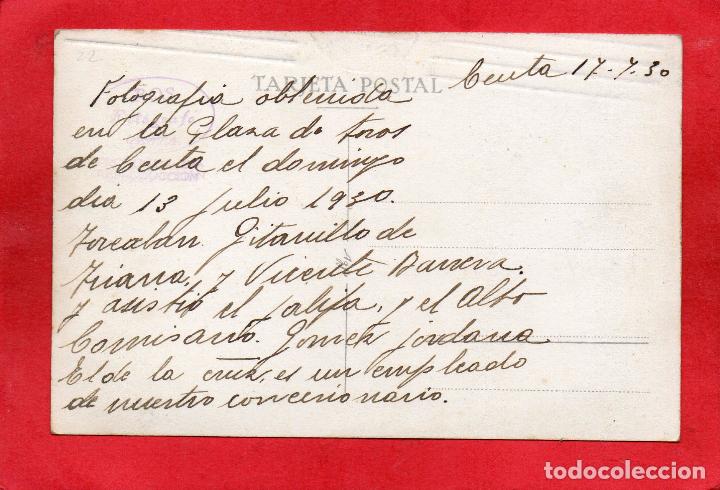 22
TARJETA POSTAL
Ceuta 17-7-30
Fotografia obtenida
en la Plaza de toros
de Ceuta el domingo
dia 13 Julio 1930.
Toreaban Gitanillo de
Triana, y Vicente Barrera.
y asistió el jalifa, y el Alto
Comisario. Gomez Jordana
El de la cruz, es un empleado
de nuestro concesionario.
todocoleccion.net